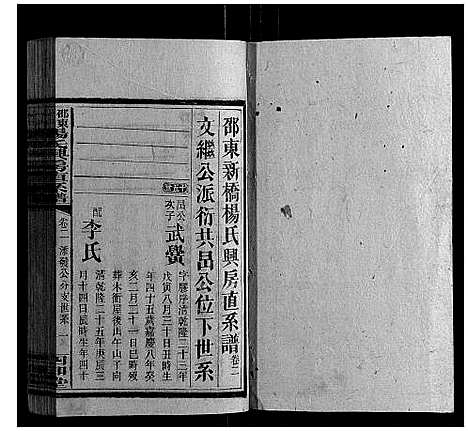 邵東新橋楊氏興房直系譜卷二
文繼公派衍共昌公位下世系
昌公
次子
武黌
字膠序清乾隆二十三年
戊寅八月三十日丑時生
年四十五歲嘉慶八年癸
亥二月三十一日巳時歿
葬木衝屋後山午山子向
配
李氏
清乾隆二十五年庚辰三
月十四日辰時生年四十
邵東楊氏興房直系譜
卷二
公分支世系